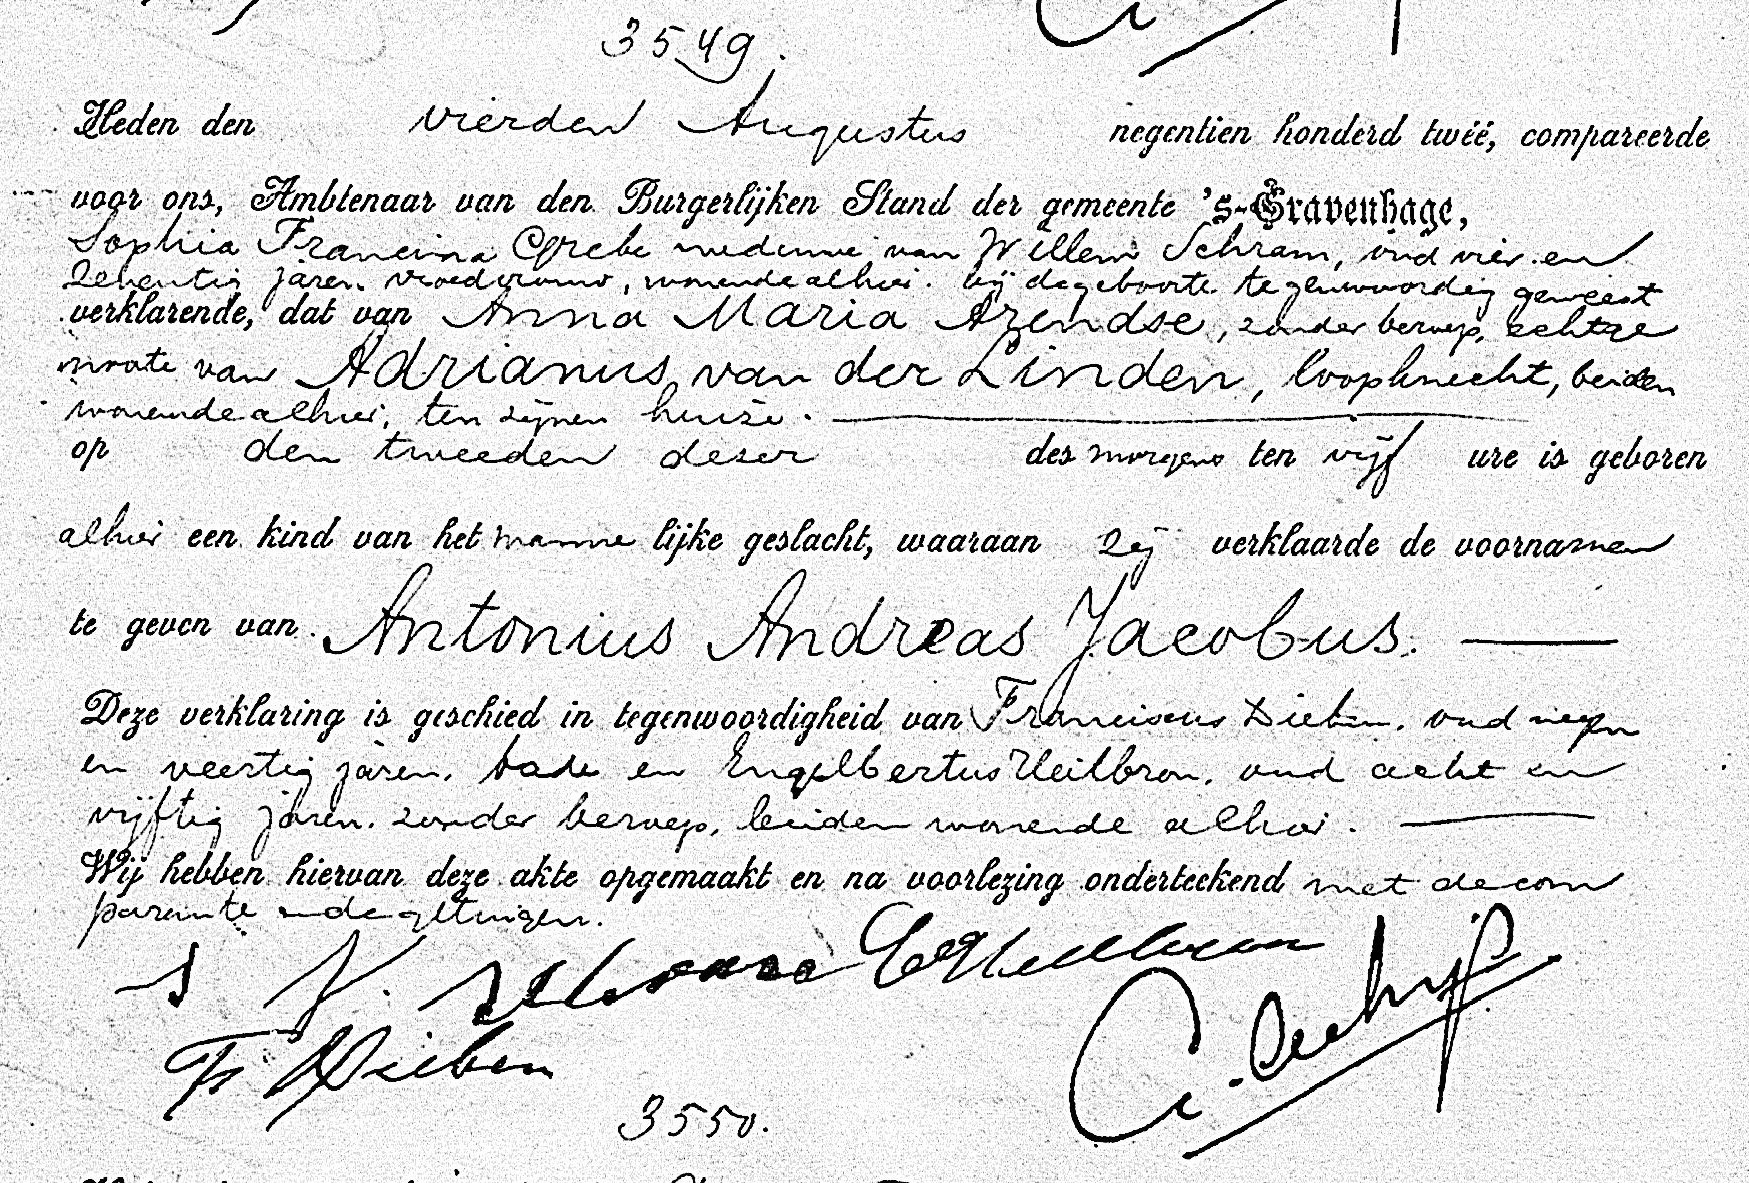 3549.
Heden den vierden Augustus negentien honderd twéé, compareerde
voor ons, Ambtenaar van den Burgerlijken Stand der gemeente 's-Gravenhage,
Sophia Francina Grebe weduwe van Willem Schram, oud vier en
zeventig jaren. vroedvrouw, wonende alhier. bij de geboorte tegenwoordig geweest
verklarende, dat van Anna Maria Arendse, zonder beroep, echtge
noote van Adrianus van der Linden, loopknecht, beiden
wonende alhier, ten zijnen huize.
op den tweeden dezer des morgens ten vijf ure is geboren
alhier een kind van het manne lijke geslacht, waaraan zij verklaarde de voornamen
te geven van Antonius Andreas Jacobus.
Deze verklaring is geschied in tegenwoordigheid van Franciscus Dieben. oud negen
en veertig jaren. bode en Engelbertus Heilbron. oud acht en
vijftig jaren. zonder beroep, beiden wonende alhier.
Wij hebben hiervan deze akte opgemaakt en na voorlezing onderteekend met de com
parante en de getuigen.
S F. Schram E Heilbron
F. Dieben
3550.